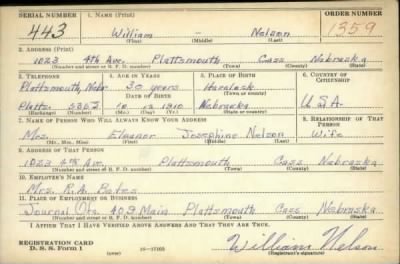 SERIAL NUMBER 1. NAME (Print) ORDER NUMBER
443 William — Nelson 1359
(First) (Middle) (Last)
2. ADDRESS (Print)
1023 4th Ave. Plattsmouth Cass Nebraska
(Number and street or R. F. D. number) (Town) (County) (State)
3. TELEPHONE 4. AGE IN YEARS 5. PLACE OF BIRTH 6. COUNTRY OF CITIZENSHIP
Plattsmouth, Nebr 30 years Havelock
DATE OF BIRTH (Town or county)
Platts. 10 13 1910 Nebraska U.S.A.
(Exchange) (Number) (Mo.) (Day) (Yr.) (State or country)
7. NAME OF PERSON WHO WILL ALWAYS KNOW YOUR ADDRESS 8. RELATIONSHIP OF THAT PERSON
Mrs. Eleanor Josephine Nelson Wife
(Mr., Mrs., Miss) (First) (Middle) (Last)
9. ADDRESS OF THAT PERSON
1023 4th Ave. Plattsmouth Cass Nebraska
(Number and street or R. F. D. number) (Town) (County) (State)
10. EMPLOYER'S NAME
Mrs. R.A. Bates
11. PLACE OF EMPLOYMENT OR BUSINESS
Journal 409 Main Plattsmouth Cass Nebraska
(Number and street or R. F. D. number) (Town) (County) (State)
I AFFIRM THAT I HAVE VERIFIED ABOVE ANSWERS AND THAT THEY ARE TRUE.
REGISTRATION CARD
D. S. S. Form 1 (over) William Nelson
(Registrant's signature)